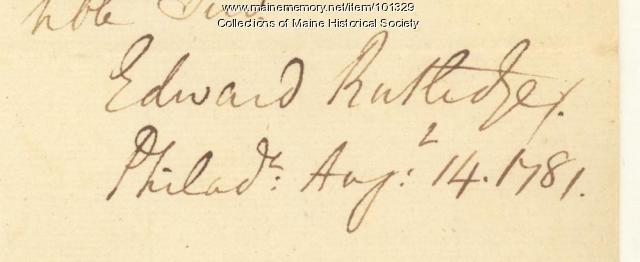 www.mainememory.net/item/101329
Collections of Maine Historical Society
hble
Edward Rutledge.
Philad<sup>a</sup>: Aug: 14. 1781.